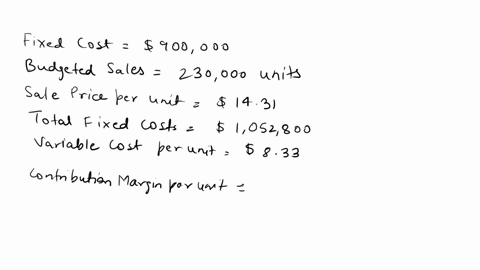 Fixed Cost = $ 900,000
Budgeted Sales = 230,000 units
Sale Price per unit = $ 14.31
Total Fixed Costs = $ 1,052,800
Variable Cost per unit = $ 8.33
Contribution Margin per unit =